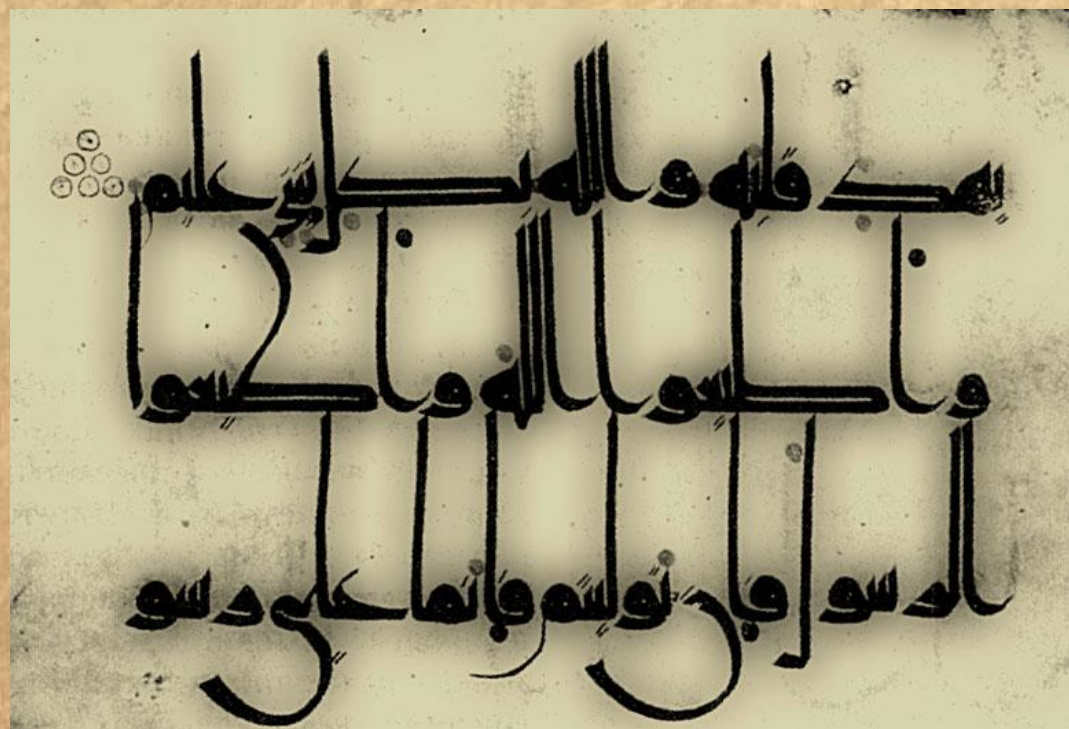 يهد قلبه والله بكل شي عليم
واطيعوا الله واطيعوا ا
لرسول فان توليتم فانما على رسو